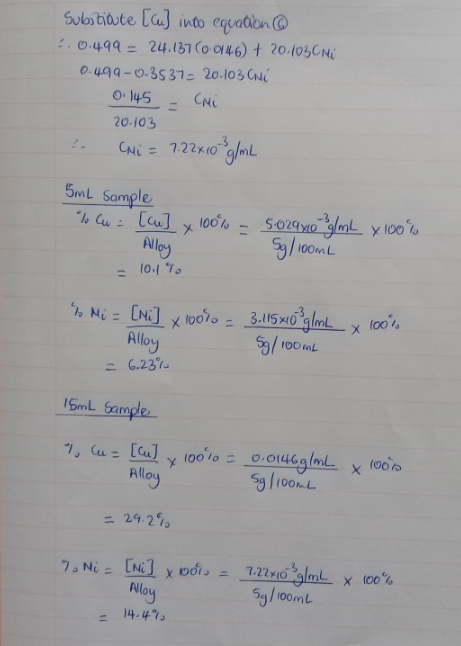 Substitute [Cu] into equation ⑥
∴ 0.499 = 24.137(0.0146) + 20.103CNi
0.499-0.3537 = 20.103CNi
0.145/20.103 = CNi
∴ CNi = 7.22x10⁻³g/mL
5mL Sample
% Cu = [Cu]/Alloy x 100% = 5.029x10⁻³g/mL / 5g/100mL x 100%
= 10.1%
% Ni = [Ni]/Alloy x 100% = 3.115x10⁻³g/mL / 5g/100mL x 100%
= 6.23%
15mL Sample
% Cu = [Cu]/Alloy x 100% = 0.0146g/mL / 5g/100mL x 100%
= 29.2%
% Ni = [Ni]/Alloy x 100% = 7.22x10⁻³g/mL / 5g/100mL x 100%
= 14.4%